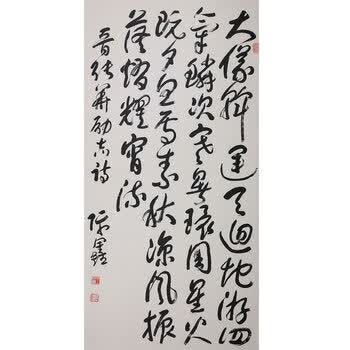 大儀斡運天迴地游四
氣鱗次寒暑環周星火
既夕忽焉素秋涼風振
落熠耀宵流
晉張華勵志詩